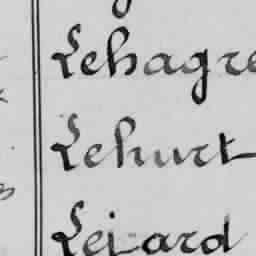 Lehagre
Lehurt
Lejard